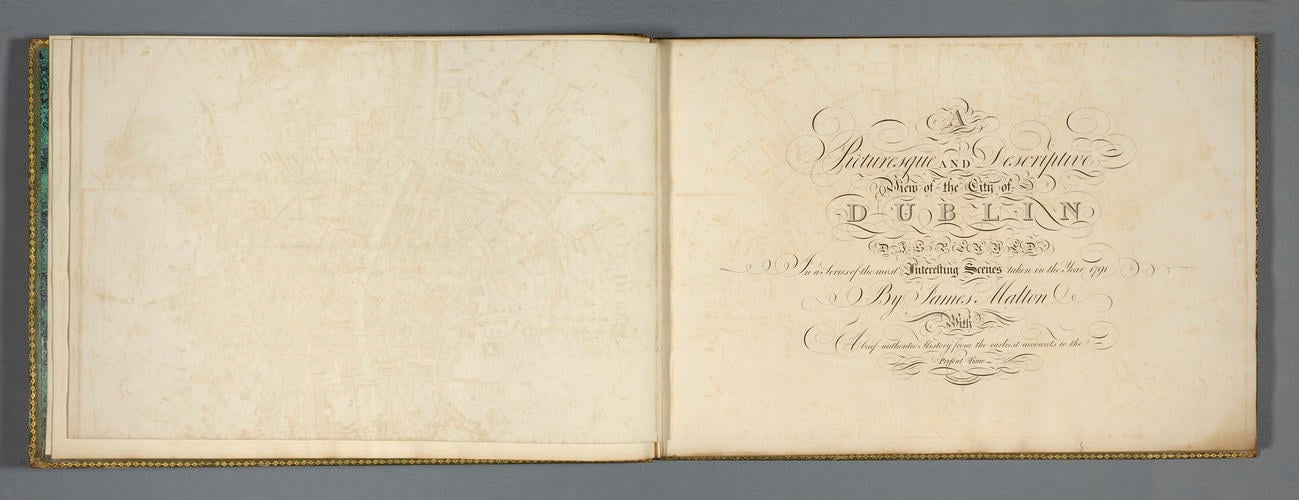 A
Picturesque AND Descriptive
View of the City of
DUBLIN
DISPLAYED
In a Series of the most Interesting Scenes taken in the Year 1791
By James Malton
With
A brief authentic History from the earliest accounts to the
Present Time